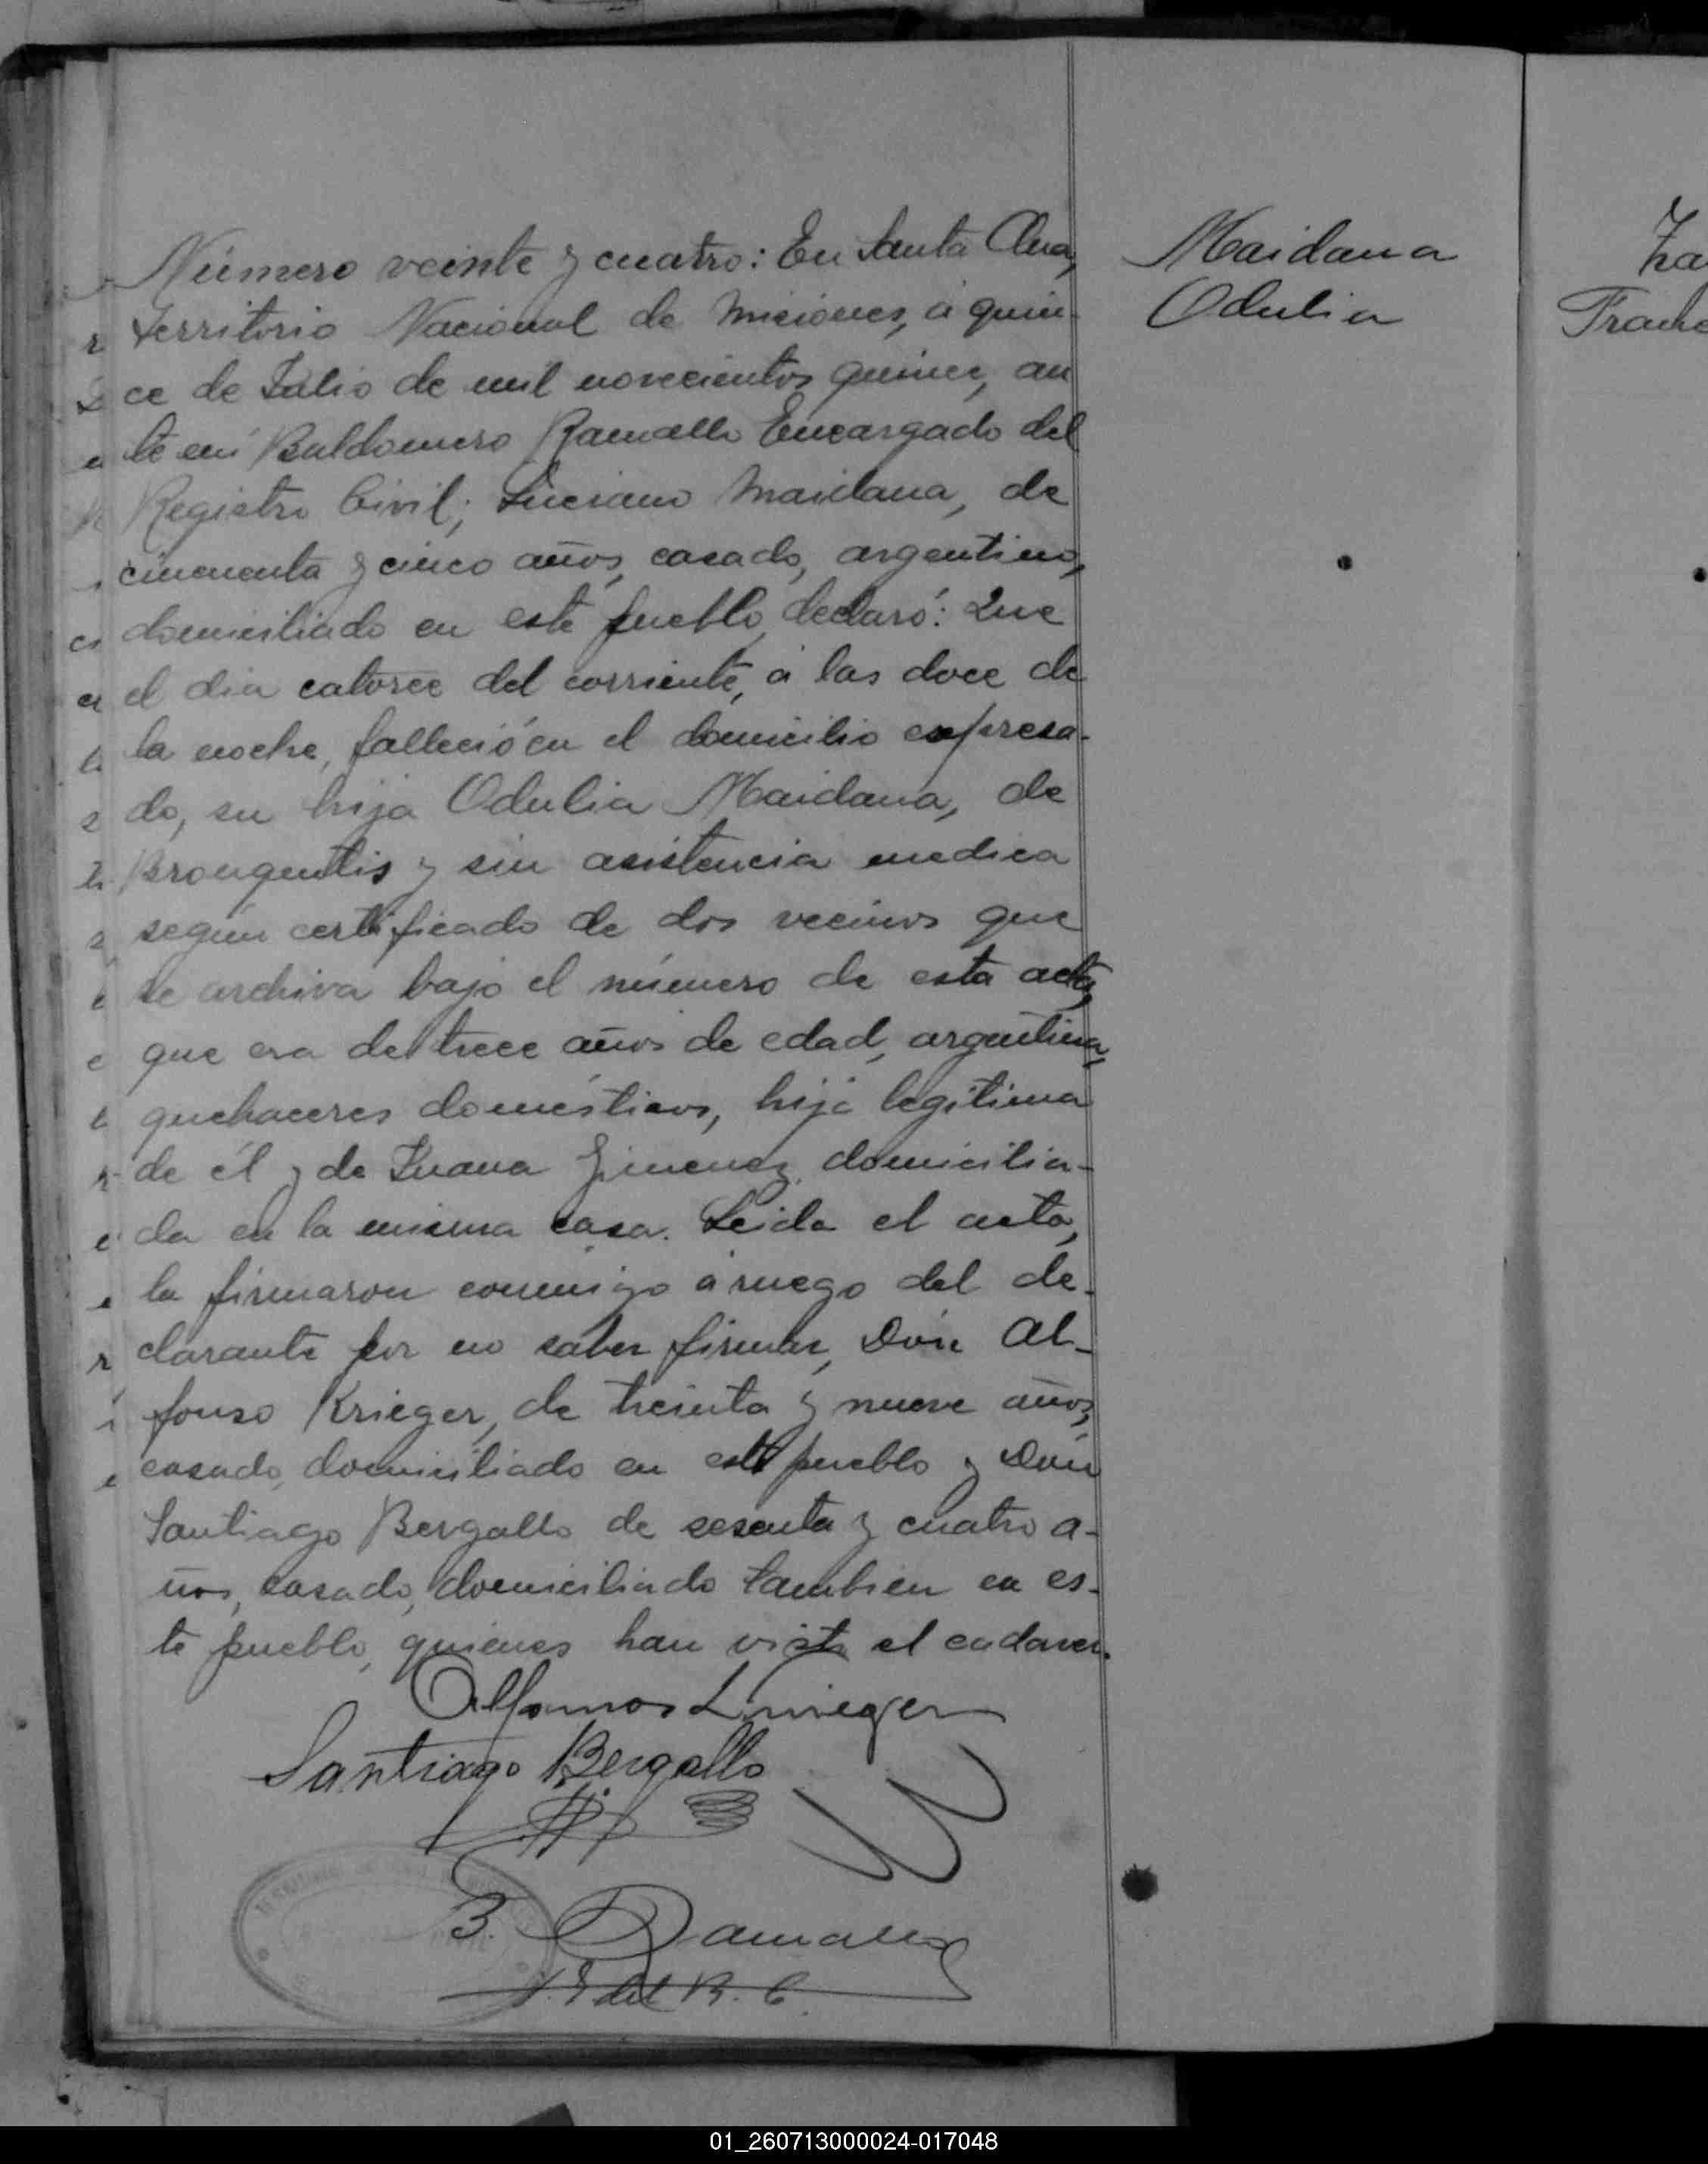 Maidana
Odulia
Número veinte y cuatro: En Santa Ana,
Territorio Nacional de Misiones, á quin-
ce de Julio de mil novecientos quince, an
te mí Baldomero Ramallo Encargado del
Registro Civil; Luciano Maidana, de
cincuenta y cinco años, casado, argentino,
domiciliado en este pueblo, declaró: Que
el dia catorce del corriente, á las doce de
la noche, falleció en el domicilio expresa-
do, su hija Odulia Maidana, de
Bronquitis y sin asistencia medica
según certificado de dos vecinos que
se archiva bajo el número de esta acta,
que era de trece años de edad, argentina,
quehaceres domésticos, hija legitima
de él y de Juana Jimenez, domicilia-
da en la misma casa. Leida el acta,
la firmaron conmigo á ruego del de-
clarante por no saber firmar, Don Al-
fonso Krieger, de treinta y nueve años,
casado, domiciliado en este pueblo y Don
Santiago Bergallo de sesenta y cuatro a-
ños, casado, domiciliado tambien en es-
te pueblo, quienes han visto el cadaver.
Alfonso Krieger
Santiago Bergallo
B. Ramallo
E. del R. C.
01_260713000024-017048